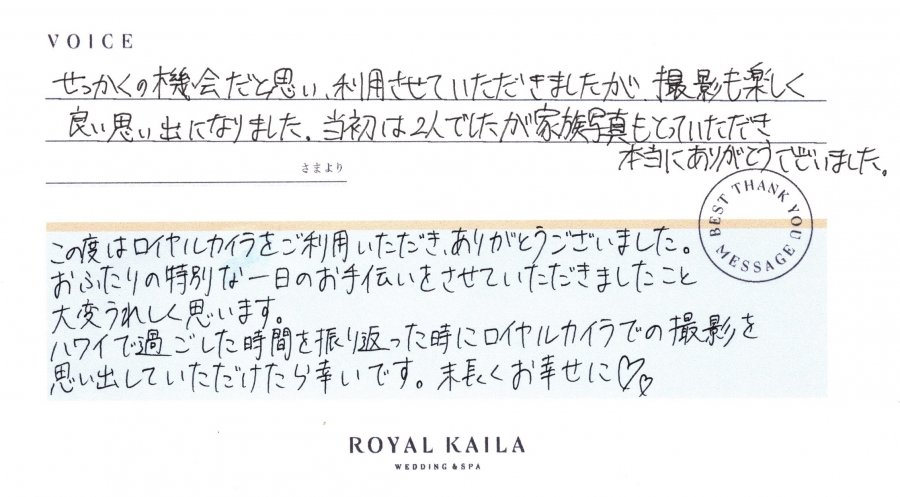 VOICE
せっかくの機会だと思い、利用させていただきましたが、撮影も楽しく
良い思い出になりました。当初は2人でしたが家族写真もとっていただき
本当にありがとうございました。
さまより
BEST THANK YOU MESSAGE
この度はロイヤルカイラをご利用いただき、ありがとうございました。
おふたりの特別な一日のお手伝いをさせていただきましたこと
大変うれしく思います。
ハワイで過ごした時間を振り返った時にロイヤルカイラでの撮影を
思い出していただけたら幸いです。末長くお幸せに♡♡
ROYAL KAILA
WEDDING & SPA